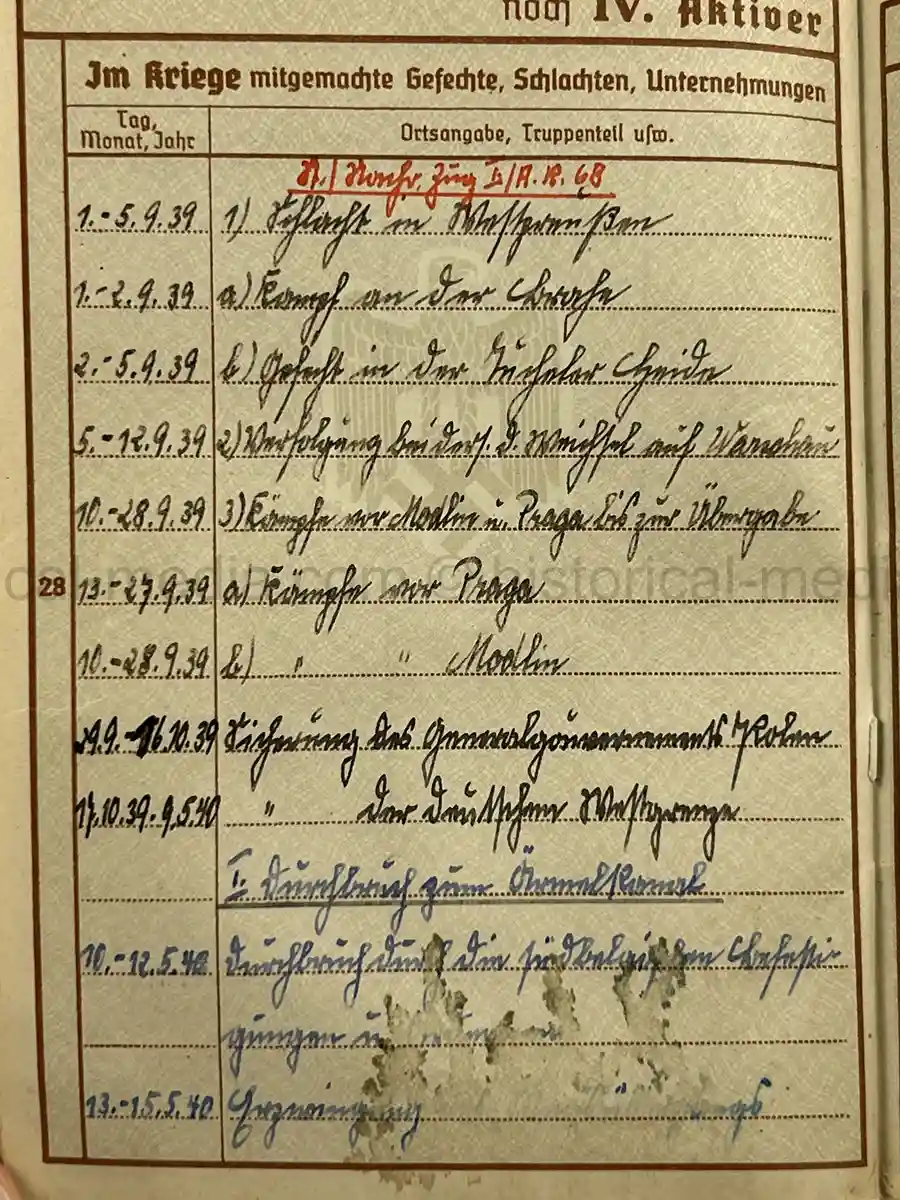 noch IV. Aktiver
Im Kriege mitgemachte Gefechte, Schlachten, Unternehmungen
Tag, Monat, Jahr
Ortsangabe, Truppenteil usw.
Nachr. Zug II/A.R. 68
1.-5.9.39 1) Schlacht in Westpreußen
1.-2.9.39 a) Kampf an der Brahe
2.-5.9.39 b) Gefecht in der Tucheler Heide
5.-12.9.39 2) Verfolgung beiders. d. Weichsel auf Warschau
10.-28.9.39 3) Kämpfe vor Modlin u. Praga bis zur Übergabe
28
13.-27.9.39 a) Kämpfe vor Praga
10.-28.9.39 b) " " Modlin
29.9.-16.10.39 Sicherung des Generalgouvernements Polen
17.10.39-9.5.40 " der deutschen Westgrenze
I. Durchbruch zum Ärmelkanal
10.-12.5.40 Durchbruch durch die südbelgischen Befesti-
gungen
13.-15.5.40